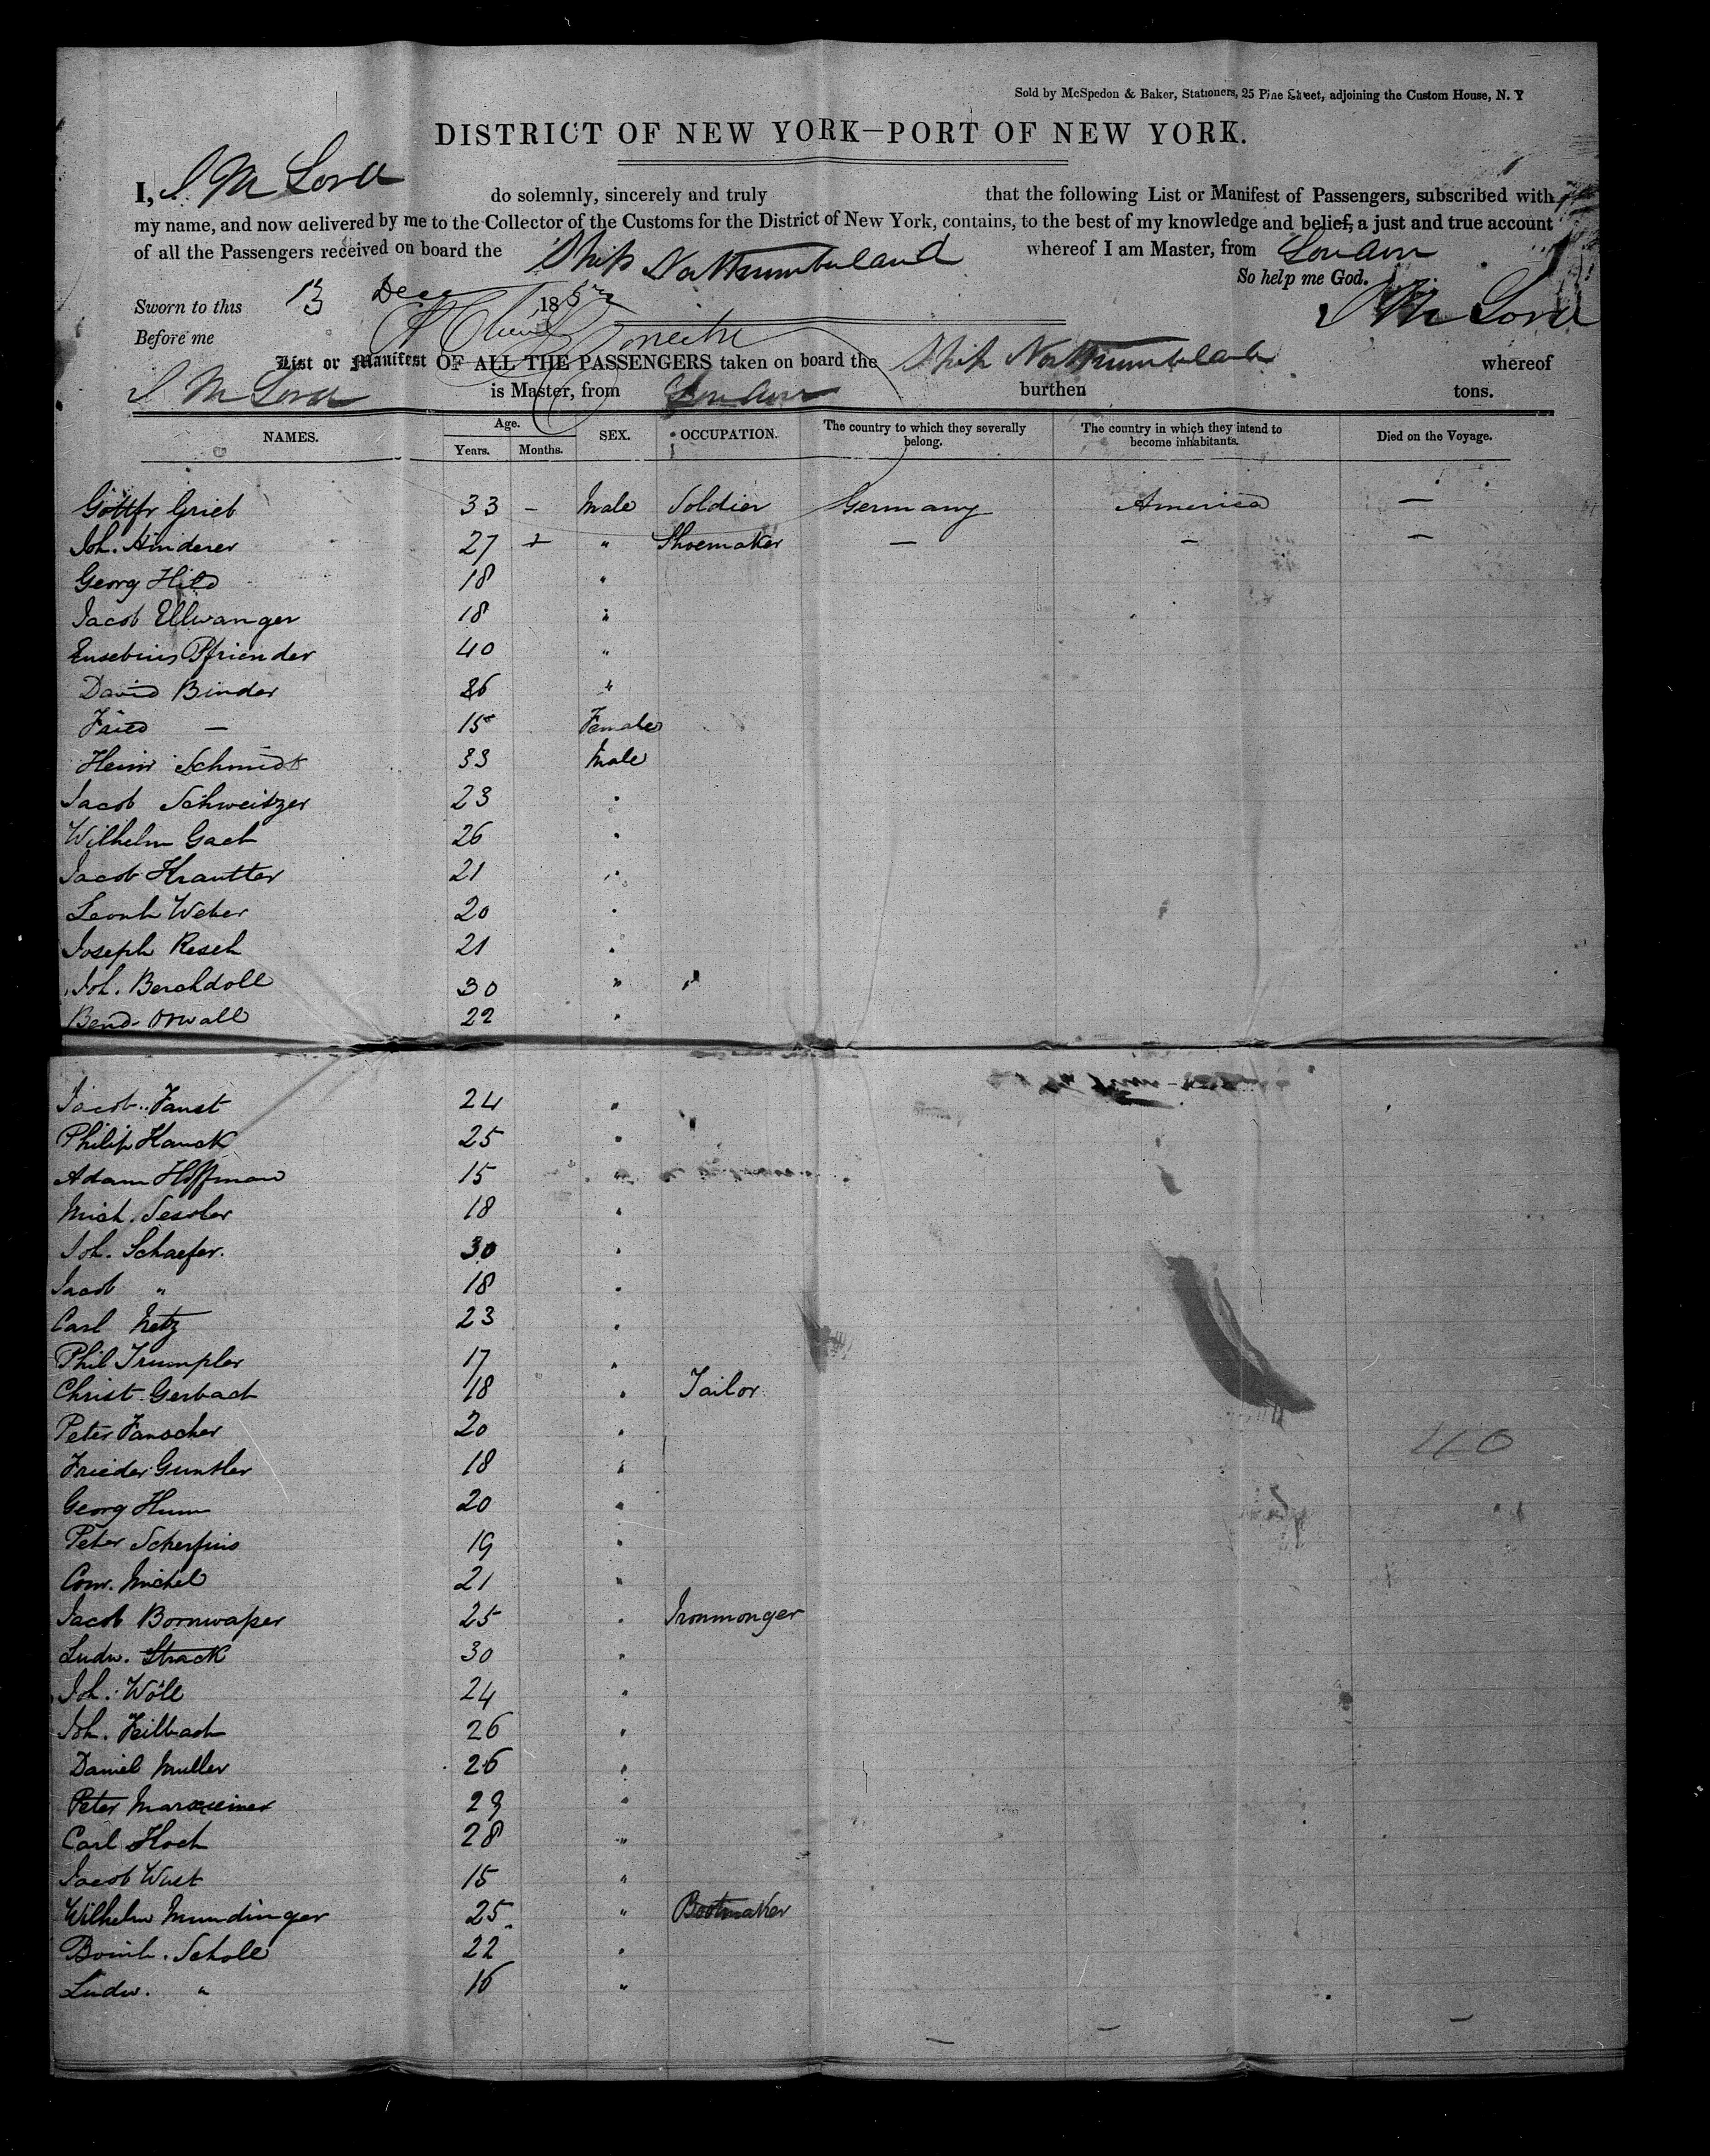 Sold by McSpedon & Baker, Stationers, 25 Pine Street, adjoining the Custom House, N. Y
DISTRICT OF NEW YORK—PORT OF NEW YORK.
I, J M Lord do solemnly, sincerely and truly that the following List or Manifest of Passengers, subscribed with
my name, and now delivered by me to the Collector of the Customs for the District of New York, contains, to the best of my knowledge and belief, a just and true account
of all the Passengers received on board the Ship Northumberland whereof I am Master, from London
So help me God.
Sworn to this 13 Dec 185
J M Lord
Before me
List or Manifest OF ALL THE PASSENGERS taken on board the Ship Northumberland whereof
J M Lord is Master, from London burthen tons.
NAMES. Age. Years. Months. SEX. OCCUPATION. The country to which they severally belong. The country in which they intend to become inhabitants. Died on the Voyage.
Gottfr Grieb 33 – Male Soldier Germany America —
Joh. Hinderer 27 + " Shoemaker — — —
Georg Hild 18 "
Jacob Ellwanger 18 "
Eusebius Pfriender 40 "
David Binder 26 "
Fried — 15 Female
Heinr Schmidt 33 Male
Jacob Schweitzer 23 "
Wilhelm Gach 26 "
Jacob Krautter 21 "
Leonh Weber 20 "
Joseph Resch 21 "
Joh. Berchdoll 30 " "
Bend. Orwall 22 "
Jacob Faust 24 "
Philip Hauck 25 "
Adam Hoffman 15 "
Mich. Sessler 18 "
Joh. Schaefer. 30 "
Jacob " 18 "
Carl Netz 23 "
Phil Trumpler 17 "
Christ. Gerbach 18 " Tailor
Peter Fanocher 20 "
40
Frieder Guntler 18 "
Georg Hum 20 "
Peter Scherfius 19 "
Conr. Michel 21 "
Jacob Bornwasser 25 " Ironmonger
Ludw. Strack 30 "
Joh. Wöll 24 "
Joh. Feilbach 26 "
Daniel Muller 26 "
Peter 29 "
Carl Hoch 28 "
Jacob Wust 15 "
Wilhelm Mundinger 25 " Bootmaker
Bernh. Scholl 22 "
Ludw. " 16 "
— — —